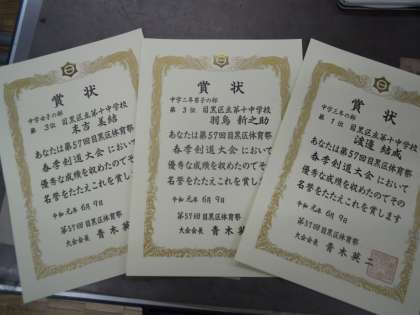 賞状
中学女子の部
第3位 目黒区立第十中学校
末吉 美結
あなたは第57回目黒区体育祭
春季剣道大会において
優秀な成績を収めたのでその
名誉をたたえこれを賞します
令和元年6月9日
第57回目黒区体育祭
大会会長 青木英
賞状
中学二年男子の部
第3位 目黒区立第十中学校
羽鳥 新之助
あなたは第57回目黒区体育祭
春季剣道大会において
優秀な成績を収めたのでその
名誉をたたえこれを賞します
令和元年6月9日
第57回目黒区体育祭
大会会長 青木英
賞状
中学三年の部
第1位 目黒区立第十中学校
渡邉 結威
あなたは第57回目黒区体育祭
春季剣道大会において
優秀な成績を収めたのでその
名誉をたたえこれを賞します
令和元年6月9日
第57回目黒区体育祭
大会会長 青木英二